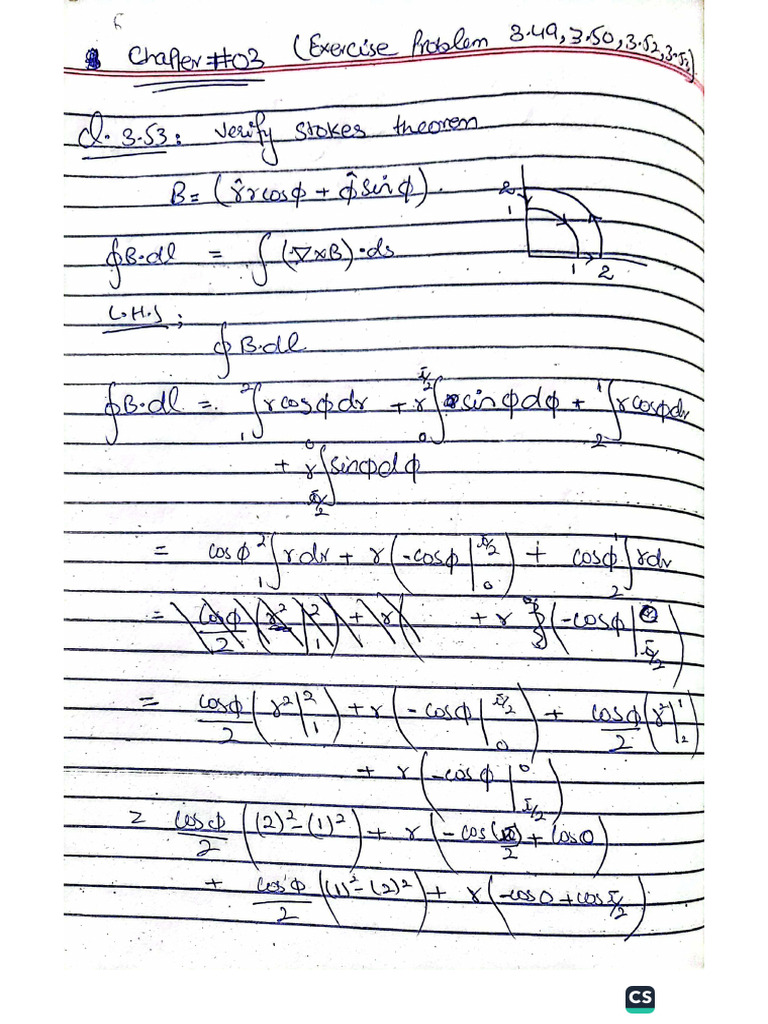 Chapter #03 (Exercise Problem 3.49, 3.50, 3.52, 3.53)
Q. 3.53: Verify Stokes theorem
B = (r̂rcosϕ + ϕ̂sinϕ).
2
1
1 2
∮B·dl = ∫(∇×B)·ds
L.H.S;
∮B·dl
∮B·dl = ₁∫² rcosϕdr + r ₀∫^π/2 sinϕdϕ + ₂∫¹ rcosϕdr
+ r _π/2∫⁰ sinϕdϕ
= cosϕ ₁∫² rdr + r(-cosϕ|₀^π/2) + cosϕ ₂∫¹ rdr
= cosϕ/2 (r²|₁²) + r( + r (-cosϕ|_π/2^0)
= cosϕ/2 (r²|₁²) + r(-cosϕ|₀^π/2) + cosϕ/2 (r²|₂¹)
+ r(-cosϕ|_π/2^0)
= cosϕ/2 ((2)²-(1)²) + r(-cos(π)/2 + cos0)
+ cosϕ/2 ((1)²-(2)²) + r(-cos0+cosπ/2)
CS